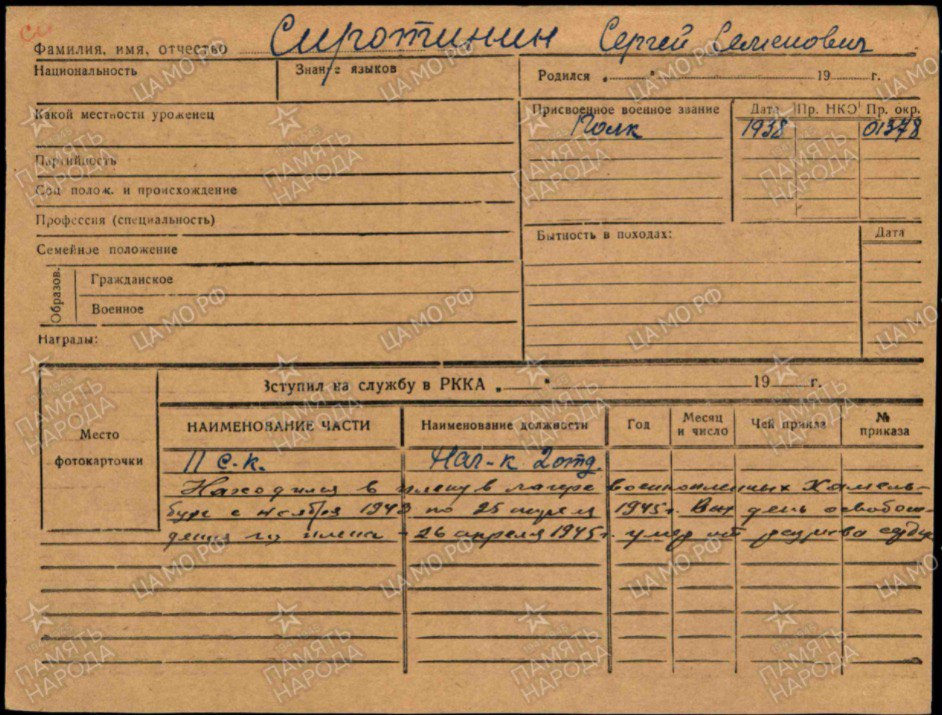 Фамилия, имя, отчество Сиротинин Сергей Семенович
Национальность
Знание языков
Родился „ " 19 г.
Какой местности уроженец
Присвоенное военное звание Дата Пр. НКО Пр. окр.
Полк 1938 01378
Партийность
Соц полож. и происхождение
Профессия (специальность)
Семейное положение
Бытность в походах: Дата
Образов.
Гражданское
Военное
Награды:
Вступил на службу в РККА „ " 19 г.
Место
фотокарточки
НАИМЕНОВАНИЕ ЧАСТИ Наименование должности Год Месяц и число Чей приказ № приказа
11 с.к. Нач-к 2 отд.
Находился в плену в лагере военнопленных Хамель-
бург с ноября по 25 апреля 1945 г. В день освобож-
дения из плена - 26 апреля 1945 г. умер от разрыва
ЦАМО.РФ
ПАМЯТЬ
НАРОДА